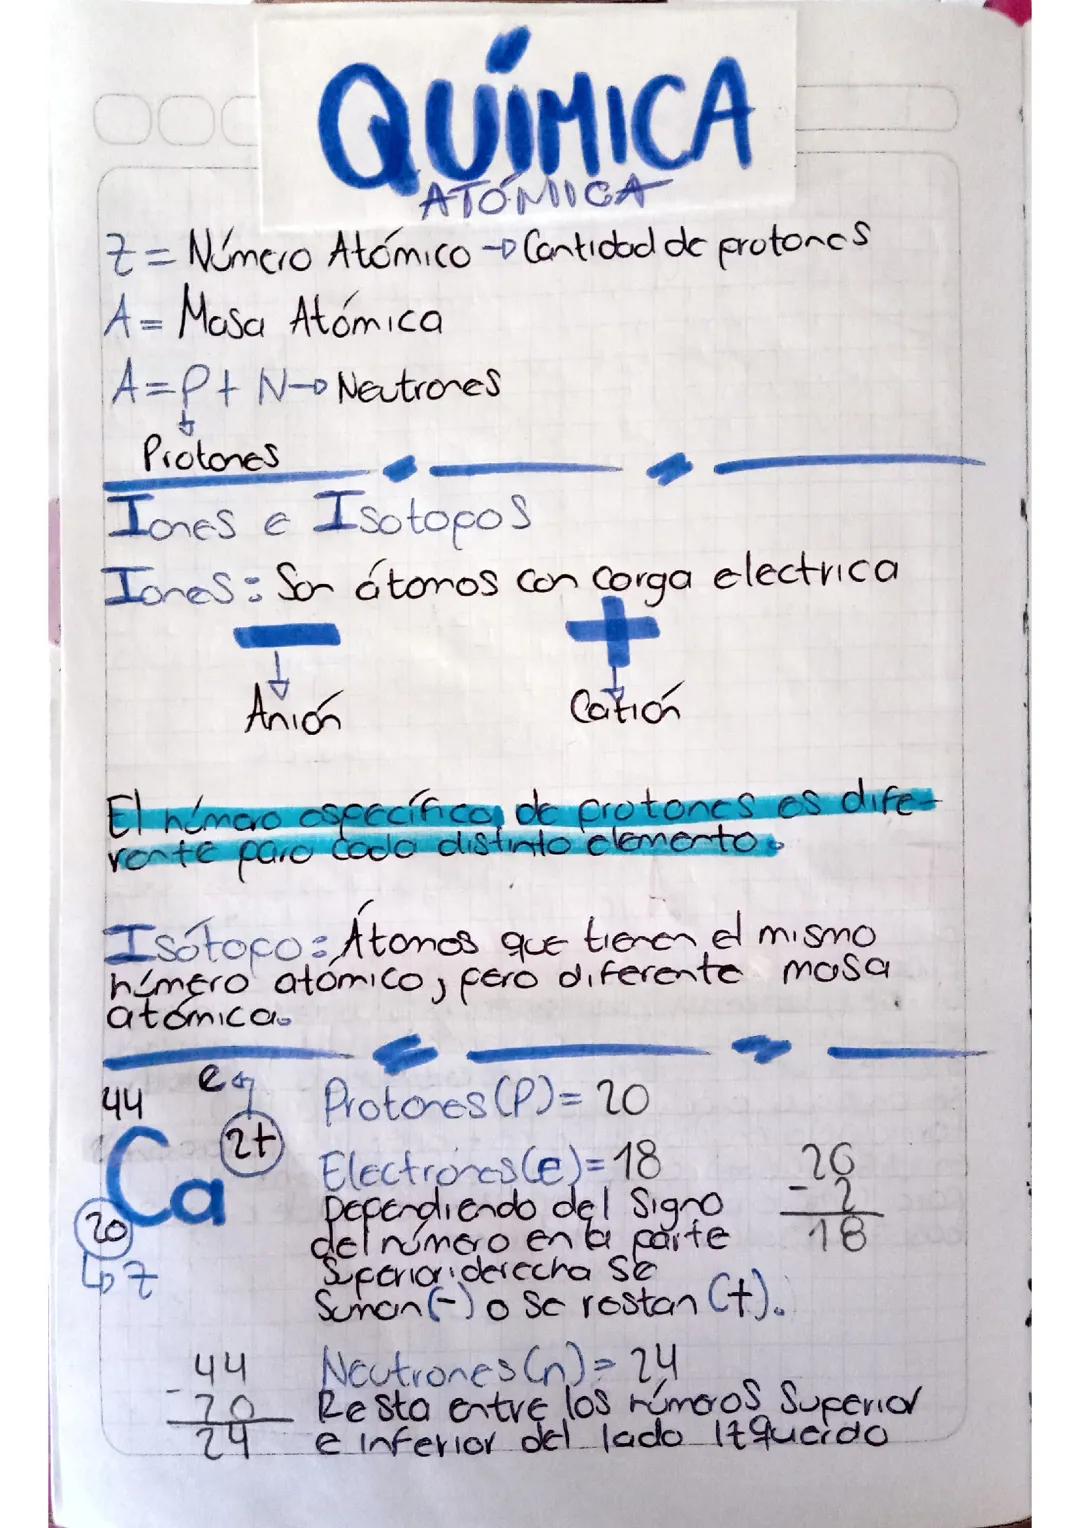 QUÍMICA
ATÓMICA
Z = Número Atómico → Cantidad de protones
A = Masa Atómica
A = P + N → Neutrones
↓
Protones
Iones e Isotopos
Iones: Son átomos con carga electrica
− +
↓ ↓
Anión Catión
El número específico, de protones es dife-
rente para cada distinto elemento.
Isótopo: Átomos que tienen el mismo
número atómico, pero diferente masa
atómica.
44 e 2+
Ca
20
↳ Z
Protones (P) = 20
Electrones (e) = 18
Dependiendo del signo
del número en la parte
Superior derecha se
Suman (-) o se restan (+).
20
- 2
18
Neutrones (n) = 24
Resta entre los números Superior
e inferior del lado Izquierdo
44
- 20
24